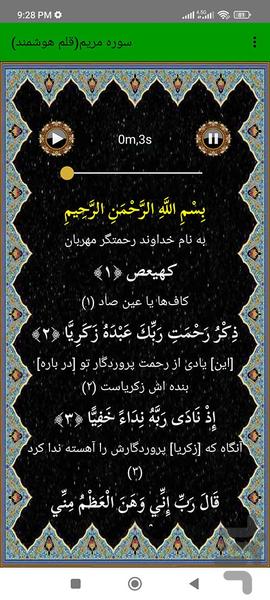 9:28 PM
سوره مریم(قلم هوشمند)
0m,3s
بِسْمِ اللَّهِ الرَّحْمَنِ الرَّحِيمِ
به نام خداوند رحمتگر مهربان
كهيعص ﴿۱﴾
کاف‌ها یا عین صاد (۱)
ذِكْرُ رَحْمَتِ رَبِّكَ عَبْدَهُ زَكَرِيَّا ﴿۲﴾
[این] یادی از رحمت پروردگار تو [در باره]
بنده اش زکریاست (۲)
إِذْ نَادَى رَبَّهُ نِدَاءً خَفِيًّا ﴿۳﴾
آنگاه که [زکریا] پروردگارش را آهسته ندا کرد
(۳)
قَالَ رَبِّ إِنِّي وَهَنَ الْعَظْمُ مِنِّي